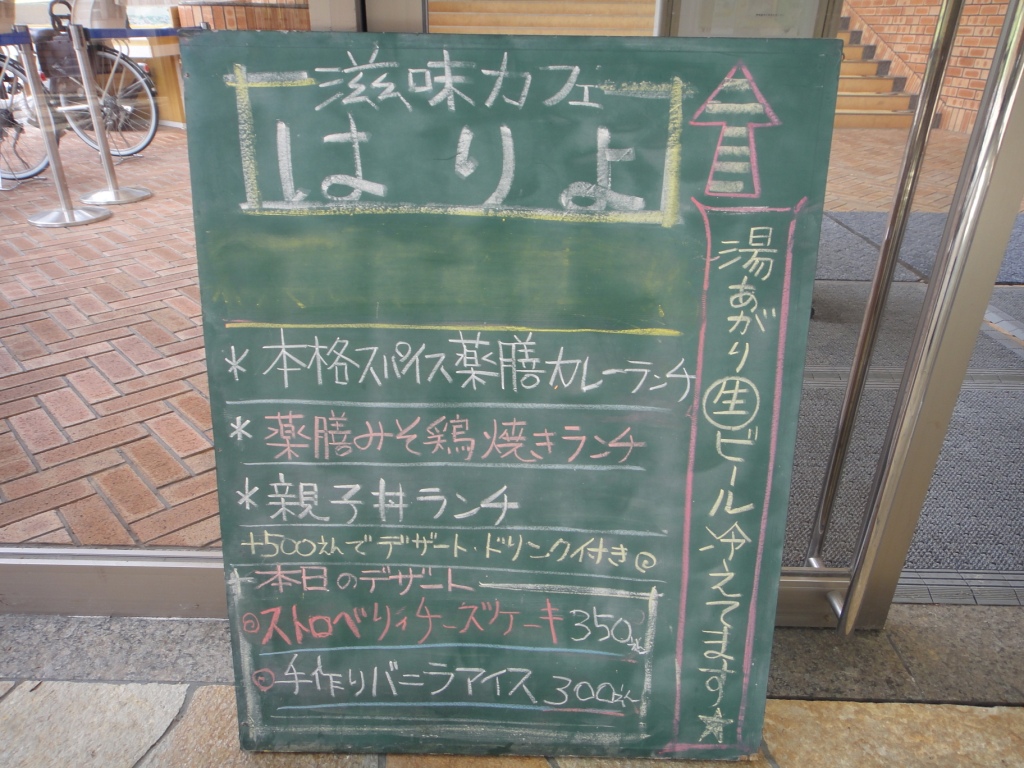 滋味カフェ
はりよ
*本格スパイス薬膳カレーランチ
*薬膳みそ鶏焼きランチ
*親子丼ランチ
+500えんでデザート・ドリンク付き
本日のデザート
ストロベリィチーズケーキ 350えん
手作りバニラアイス 300えん
湯あがり㊝ビール冷えてます☆